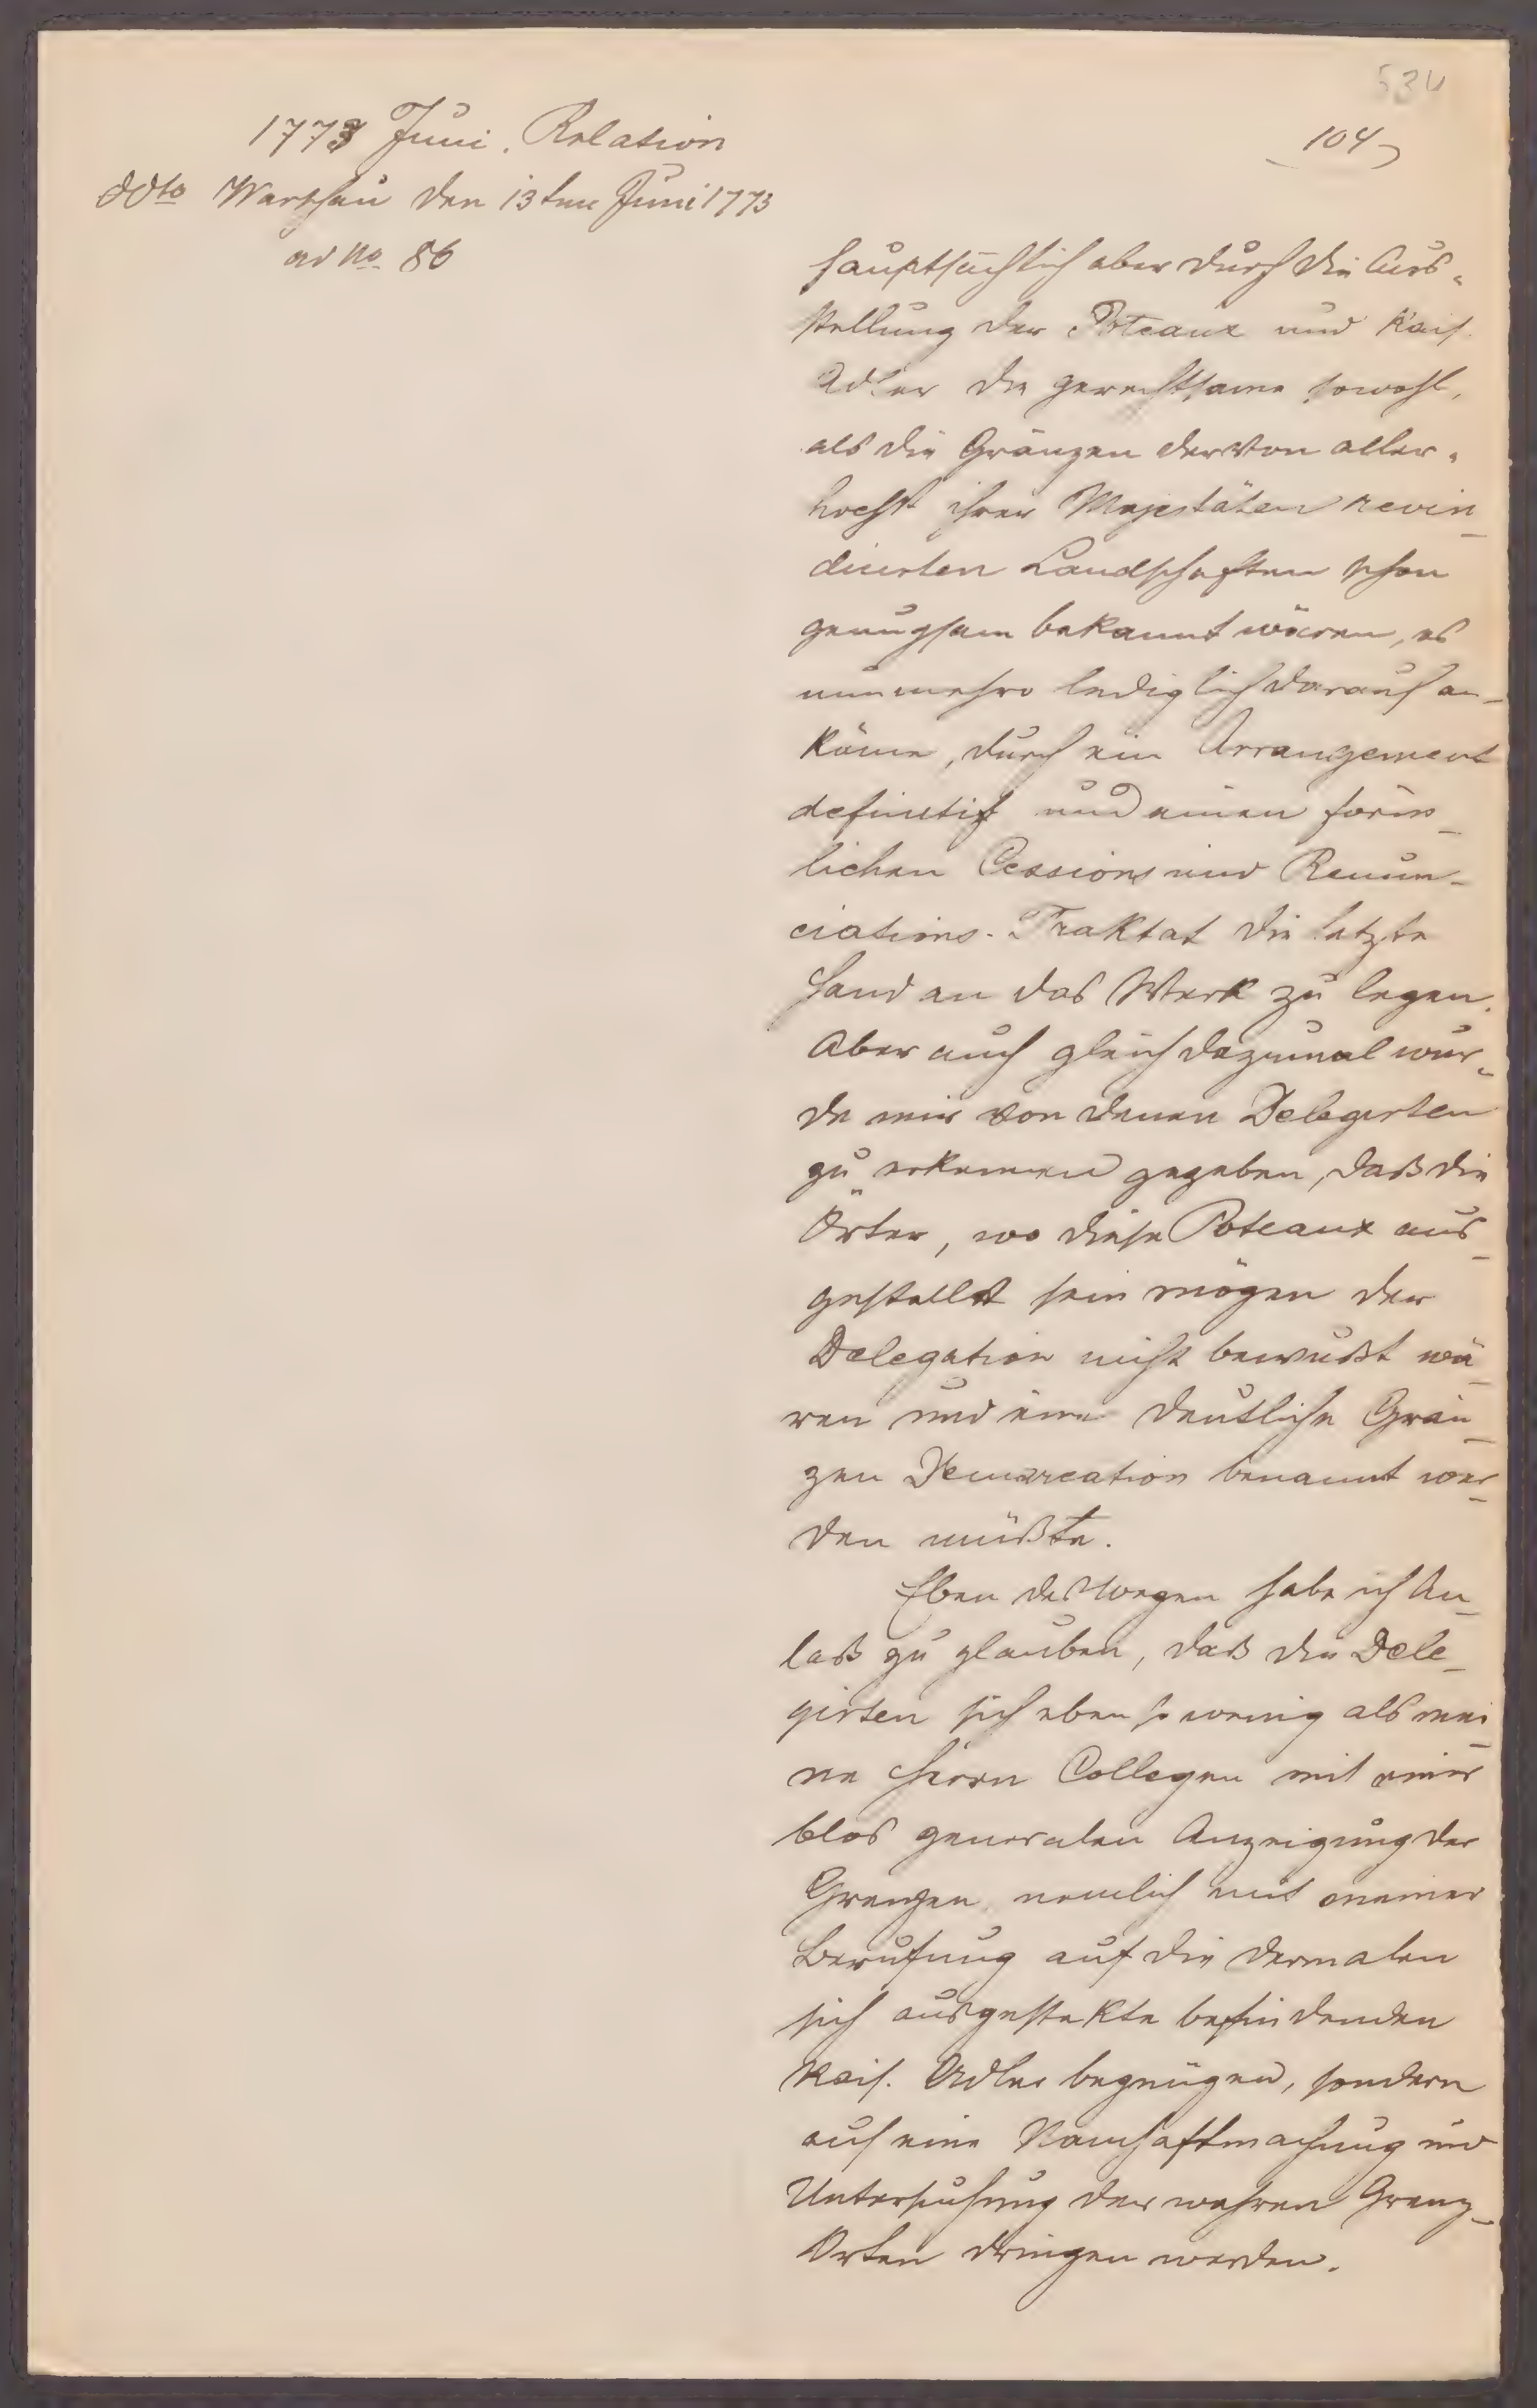 534
104
1773 Juni. Relation
ddto Warschau den 13ten Juni 1773
ad No. 86
hauptsächlich aber durch die Aus-
stellung der Poteaux und Kais.
Adler die gerechtsame sowohl,
als die Gränzen der von aller-
hoechst ihrer Majestäten revin-
dicirten Landschaften schon
genugsam bekannt wären, es
nunmehro lediglich darauf an-
käme, durch ein Arrangement
definitif und einen förm-
lichen Cessions und Renun-
ciations-Traktat die letzte
Hand an das Werk zu legen.
Aber auch gleich dazumal wur-
de mir von denen Delegirten
zu erkennen gegeben, daß die
Örter, wo diese Poteaux aus-
gestellt sein mögen der
Delegation nicht bewußt wä-
ren und eine deutliche Grän-
zen Demarcation benannt wer-
den müßte.
Eben deßwegen habe ich An-
laß zu glauben, daß die Dele-
girten sich eben so wenig als mei-
ne Herrn Collegen mit einer
blos generalen Anzeigung der
Grenzen, nemlich mit meiner
Berufung auf die dermalen
sich ausgestekte befindenden
Kais. Adler begnügen, sondern
auf eine Namhaftmachung und
Untersuchung der wahren Grenz-
Orten dringen werden.